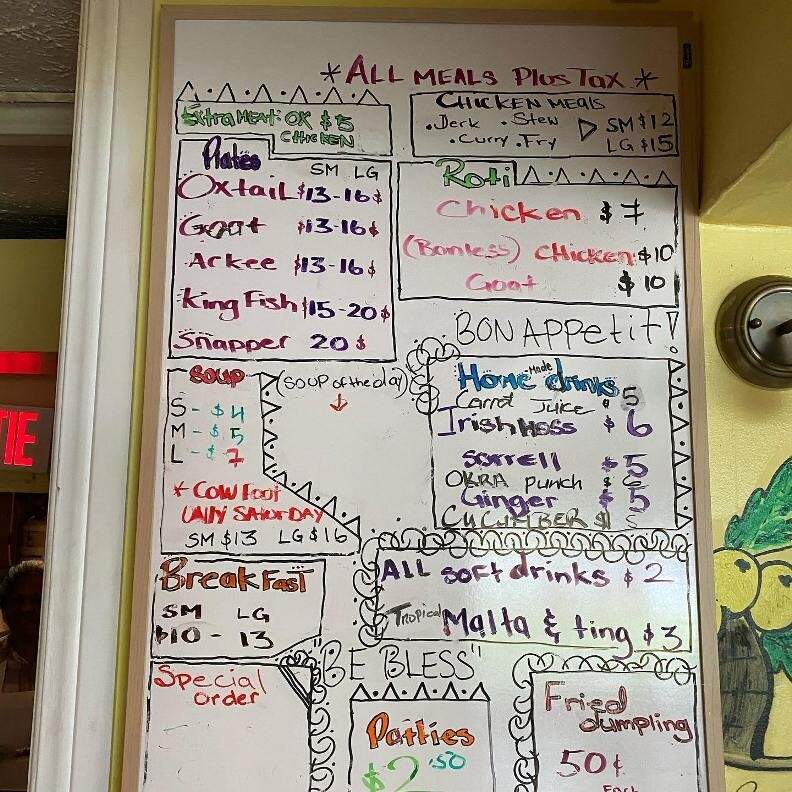 *ALL MEALS Plus Tax*
Extra MEAT: OX $5
CHICKEN
CHICKEN MEALS
.Jerk .Stew
.Curry .Fry
SM $12
LG $15
Plates
SM LG
Oxtail $13-16$
Goat $13-16$
Arkee $13-16$
King Fish $15-20$
Snapper 20$
Roti
Chicken $7
(Bonless) CHicken $10
Goat $10
BON APPetiT!
SOUP
S - $4
M - $5
L - $7
(SOUP of the day)
* COW Foot
SM $13 LG $16
Home Made drinks
Carrot Juice $5
Irish Moss $6
Sorrell $5
OKRA Punch $6
Ginger $5
CUCUMBER $
ALL soft drinks $2
Tropical Malta & ting $3
BreakFast
SM LG
$10 - 13
"BE BLESS"
Special
order
Patties
$2.50
Fried
dumpling
50¢
EACH
TIE